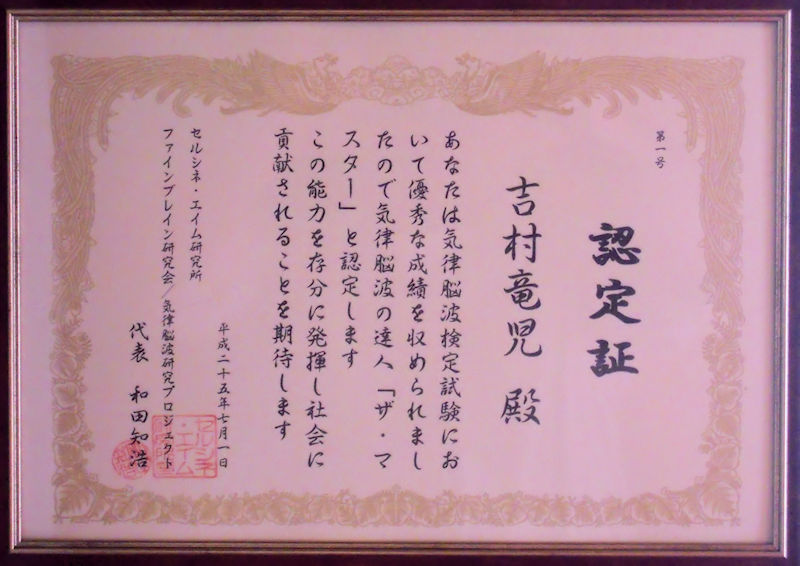 第一号
認定証
吉村竜児 殿
あなたは気律脳波検定試験にお
いて優秀な成績を収められまし
たので気律脳波の達人「ザ・マ
スター」と認定します
この能力を存分に発揮し社会に
貢献されることを期待します
平成二十五年七月一日
セルシネ・エイム研究所
ファインブレイン研究会/気律脳波研究プロジェクト
代表 和田知浩
セルシネ
・エイム
研究所